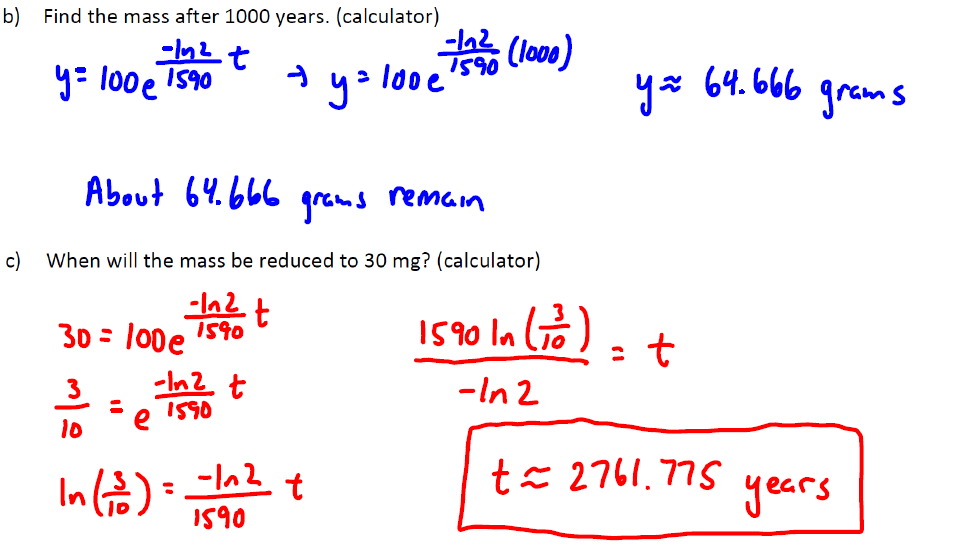 b) Find the mass after 1000 years. (calculator)
y = 100e^(-ln2/1590 t) → y = 100e^(-ln2/1590 (1000)) y ≈ 64.666 grams
About 64.666 grams remain
c) When will the mass be reduced to 30 mg? (calculator)
30 = 100e^(-ln2/1590 t)
3/10 = e^(-ln2/1590 t)
ln(3/10) = -ln2/1590 t
1590 ln(3/10)/-ln2 = t
t ≈ 2761.775 years